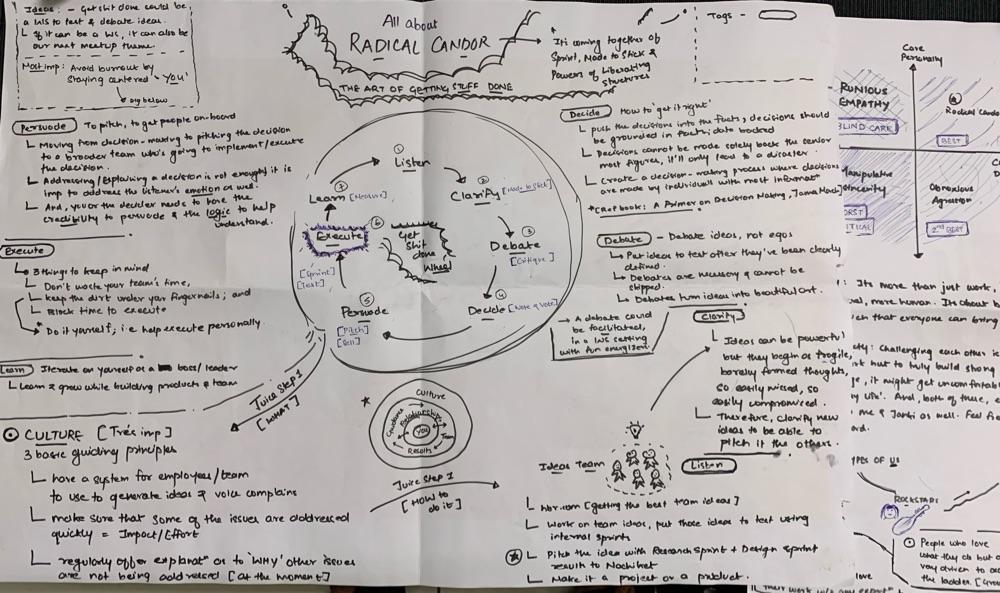 Ideas: - Get shit done could be
a WS to test & debate ideas.
If it can be a WS, it can also be
our next meetup theme.
Most imp: Avoid burnout by
Staying centered - 'YOU'
org below
All about
RADICAL CANDOR
THE ART OF GETTING STUFF DONE
* It's coming together of
Sprint, Made to Stick &
Powers of Liberating
structures
Tags -
Persuade To pitch, to get people on-board
Moving from decision-making to pitching the decision
to a broader team who's going to implement/execute
the decision.
Addressing/Explaining a decision is not enough; it is
imp to address the listener's emotion as well.
And, you or the decider needs to have the
credibility to persuade & the logic to help
understand.
Execute
3 things to keep in mind
Don't waste your team's time,
Keep the dirt under your fingernails; and
Block time to execute
* Do it yourself; i.e help execute personally
Learn Iterate on yourself as a boss/leader
Learn & grow while building products & team
① Listen
② Clarify [Made to Stick]
③ Debate
[Critique]
④ Decide [Note & Vote]
⑤ Persuade
[Pitch]
[Sell]
⑥ Execute
[Sprint]
[Test]
⑦ Learn [Measure]
Get
Shit
done
Wheel
Decide How to 'get it right'
push the decisions into the facts; decisions should
be grounded in facts; data backed
Decisions cannot be made solely back the senior
most figures, it'll only lead to a disaster.
create a decision-making process where decisions
are made by individuals with most informatn
* [Ref book: A Primer on Decision Making, James March]
Debate - Debate ideas, not egos
Put ideas to test after they've been clearly
defined.
Debates are necessary & cannot be
skipped.
Debates turn ideas into beautiful art.
→ A debate could
be facilitated,
in a WS setting
with fun energizers
Clarify
Ideas can be powerful
but they begin as fragile,
barely formed thoughts,
so easily missed, so
easily compromised.
Therefore, clarify new
ideas to be able to
pitch it the others.
Juice Step 1
[WHAT]
CULTURE [Très imp]
3 basic guiding principles
have a system for employees/team
to use to generate ideas & voice complains
make sure that some of the issues are addressed
quickly = Impact/Effort
regularly offer explanatn as to 'WHY' other issues
are not being addressed [at the moment]
Culture
Guidance
Relationships
YOU
Team
Results
Juice Step 1
[HOW TO
do it]
Ideas Team
Listen
[getting the best team ideas]
Work on team ideas, put those ideas to test using
internal sprints
Pitch the idea with Research Sprint + Design sprint
result to Nachiket
Make it a project or a product.
Care
Personally
RUNIOUS
EMPATHY
BLIND CARE
Radical Cando
BEST
Manipulative
Insincerity
ORST
ITICAL
Obnoxious
Agression
2nd BEST
C
D
: Its more than just work,
, more human. Its about b
ch that everyone can bring
ty: Challenging each other is
rt but to truly build strong
, it might get uncomfortab
. And, both of these, c
me & Janki as well. Feel fre
ard.
YPES OF US
ROCKSTARS
People who love
what they do but a
very driven to
the ladder. [Grow
love